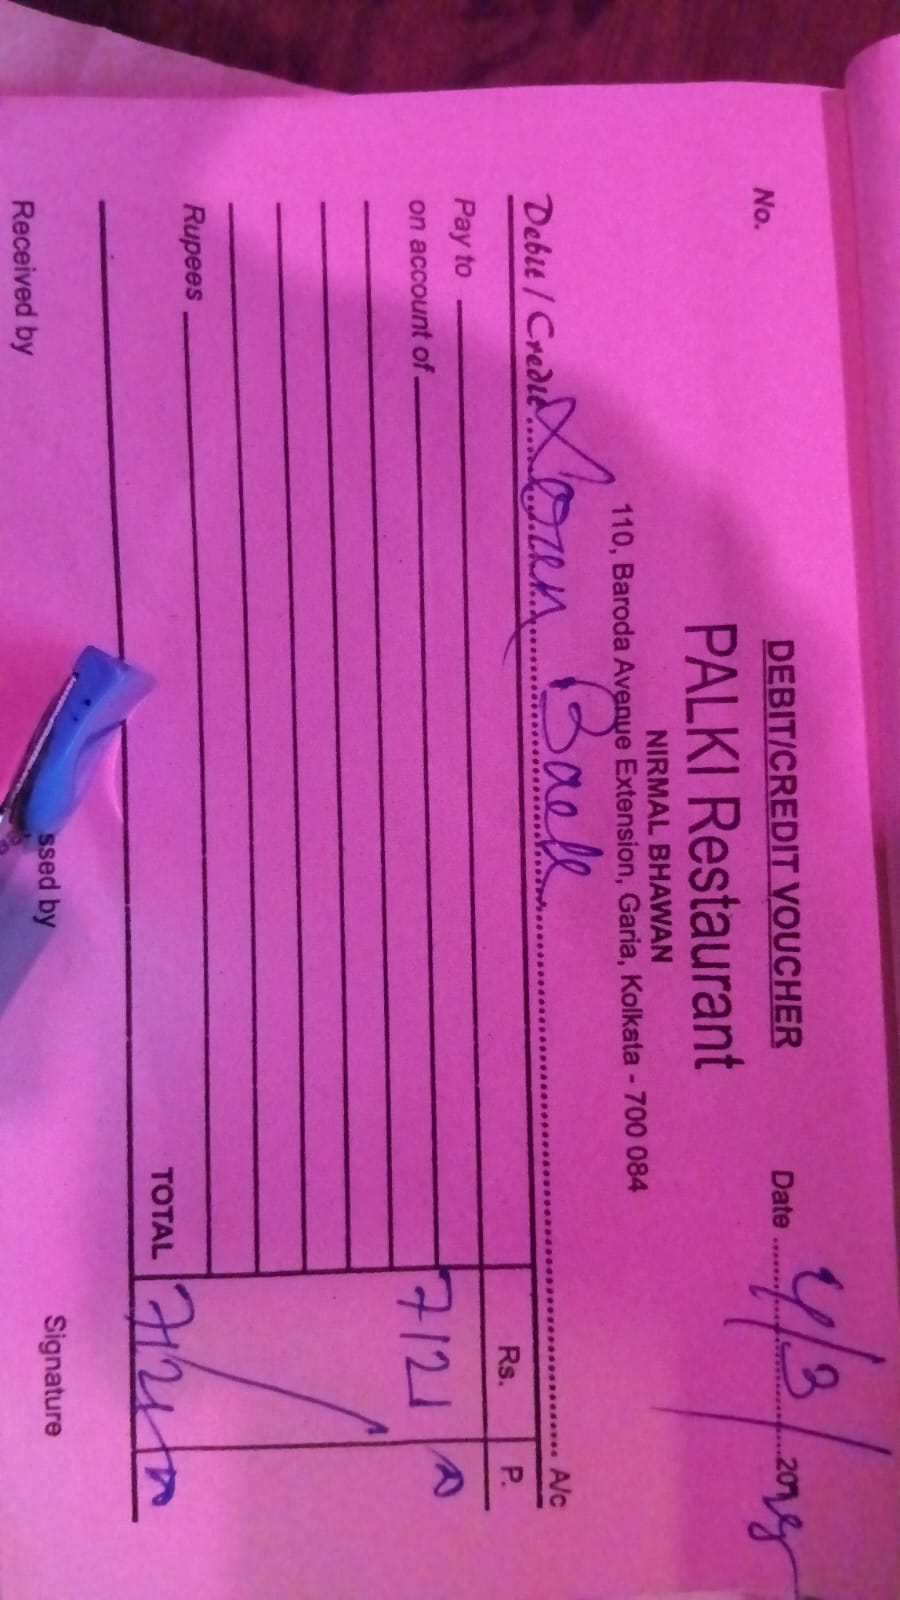 No.
DEBIT/CREDIT VOUCHER
Date 4/3/20
PALKI Restaurant
NIRMAL BHAWAN
110, Baroda Avenue Extension, Garia, Kolkata - 700 084
Debit / Credit A/c
Rs. P.
Pay to
on account of 7121
Rupees
TOTAL
Received by
ssed by
Signature